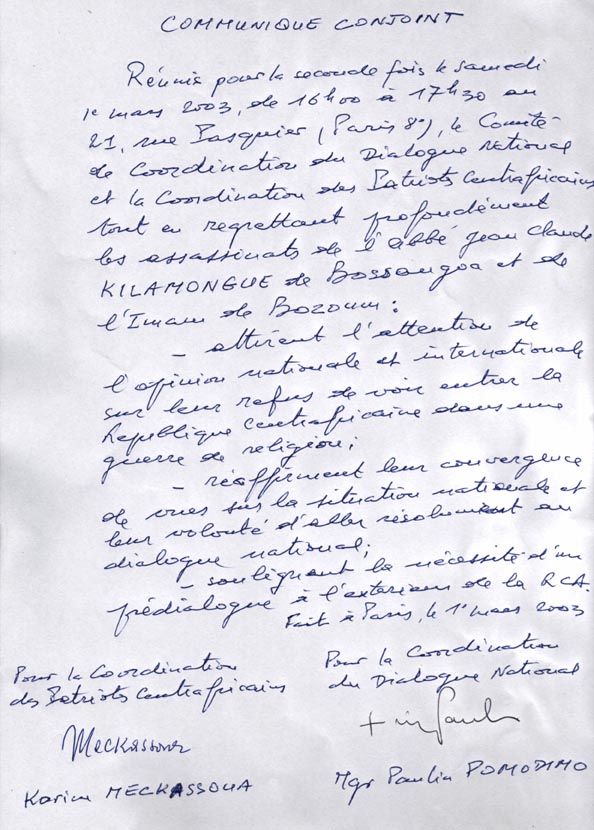 COMMUNIQUE CONJOINT
Réunis pour la seconde fois le samedi
1er mars 2003, de 16h00 à 17h30 au
21, rue Pasquier (Paris 8e), le Comité
de Coordination du Dialogue National
et la Coordination des Patriots Centrafricains
tout en regrettant profondément
les assassinats de l'abbé Jean Claude
KILAMONGUE de Bossangoa et de
l'Imam de Bozoum :
- attirent l'attention de
l'opinion nationale et internationale
sur leur refus de voir entrer la
République Centrafricaine dans une
guerre de religion ;
- réaffirment leur convergence
de vues sur la situation nationale et
leur volonté d'aller résolument au
dialogue national ;
- soulignent la nécessité d'un
prédialogue à l'exterieur de la RCA.
Fait à Paris, le 1er mars 2003
Pour la Coordination
des Patriots Centrafricains
Pour la Coordination
du Dialogue National
Meckassoua
Karim MECKASSOUA
Mgr Paulin POMODIMO